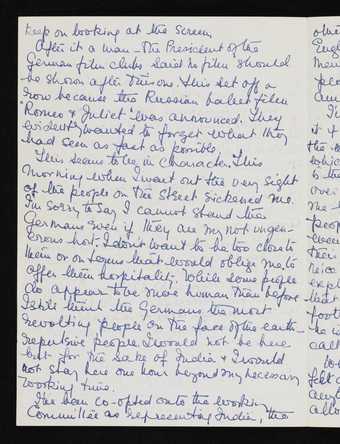 keep on looking at the screen
After it a man – the President of the
German film clubs said no film should
be shown after this one. This set off a
row because the Russian ballet film
"Romeo & Juliet" was announced. They
evidently wanted to forget what they
had seen as fast as possible.
This seems to be in character. This
morning when I went out the very sight
of the people on the street sickened me.
I'm sorry to say I cannot stand the
Germans even if they are my not ungen-
erous host. I don't want to be too close to
them or on terms that would oblige me to
offer them hospitality. While some people
do appear to be more human than before
I still think the Germans the most
revolting people on the face of the earth –
repulsive people. I would not be here
but for the sake of India & I would
not stay here one hour beyond my necessary
working time.
I've been co-opted onto the working
Committee as representing India, the